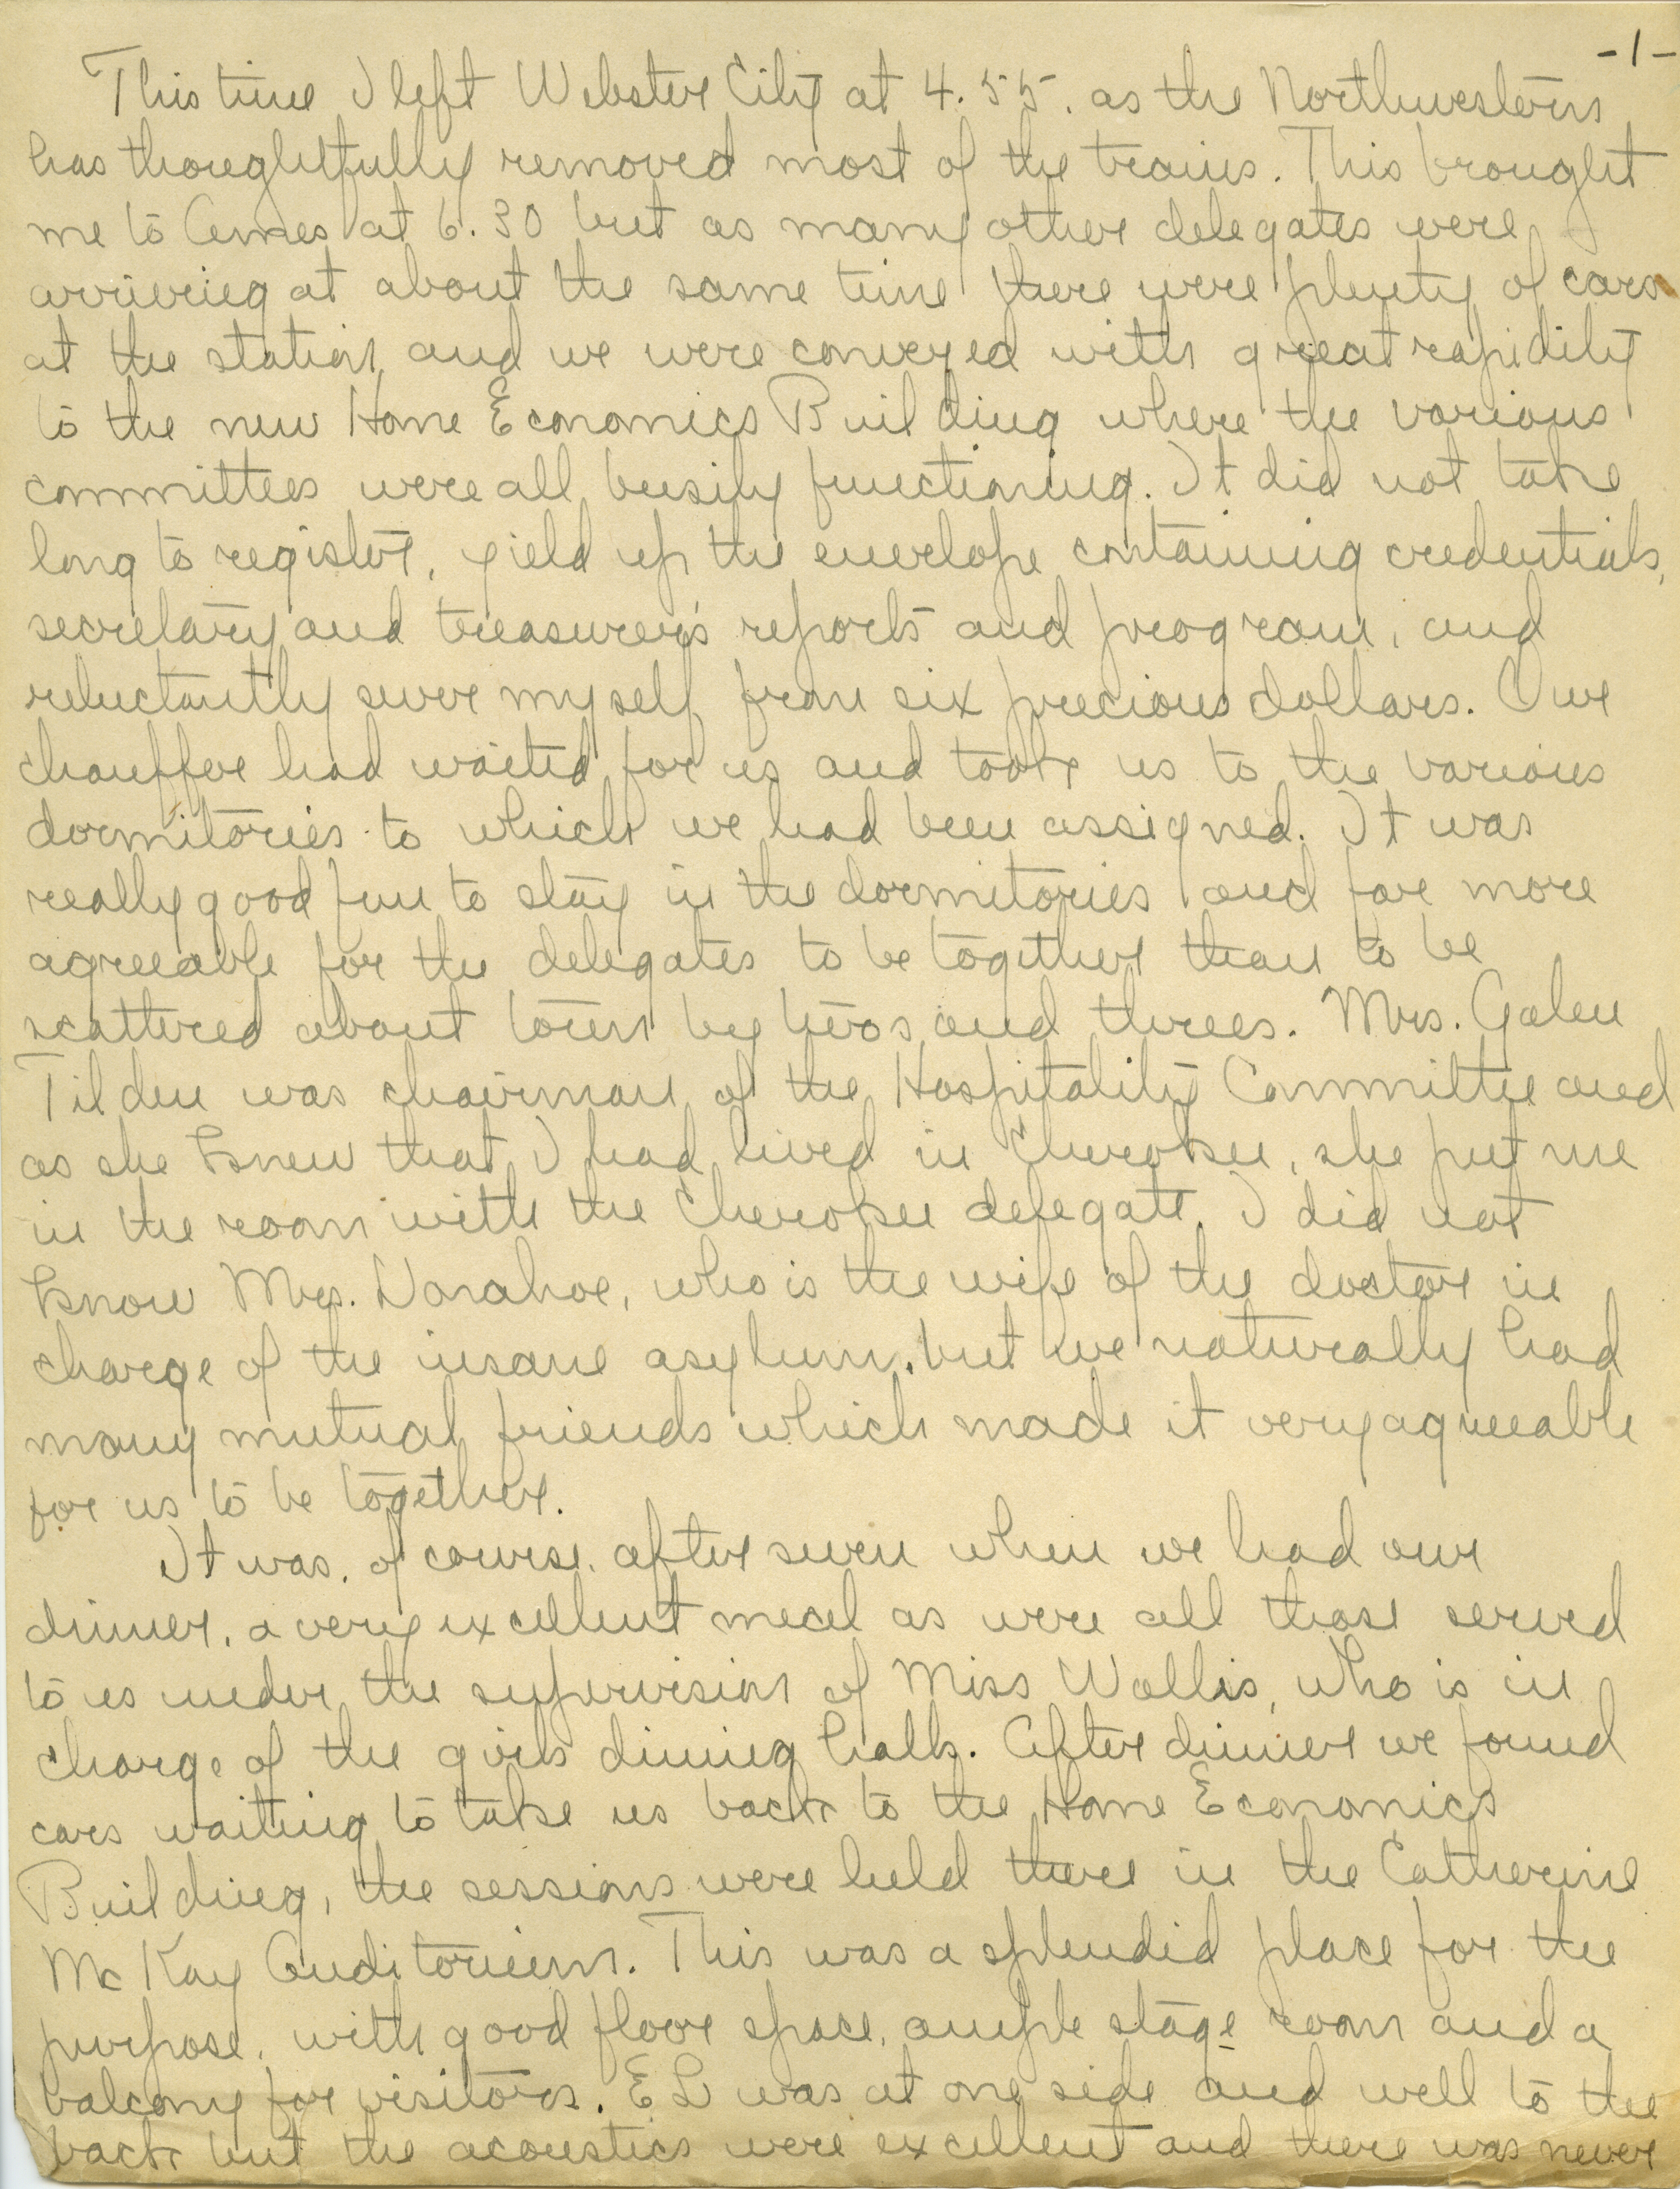 -1-
This time I left Webster City at 4.55. as the Northwestern
has thoughtfully removed most of the trains. This brought
me to Ames at 6.30 but as many other delegates were
arriving at about the same time there were plenty of cars
at the station and we were conveyed with great rapidity
to the new Home Economics Building where the various
committees were all busily functioning. It did not take
long to register, yield up the envelope containing credentials,
secretary and treasurer's reports and program, and
reluctantly sever myself from six precious dollars. Our
chauffer had waited for us and took us to the various
dormitories to which we had been assigned. It was
really good fun to stay in the dormitories and far more
agreeable for the delegates to be together than to be
scattered about town by twos and threes. Mrs. Galen
Tilden was chairman of the Hospitality Committee and
as she knew that I had lived in Cherokee, she put me
in the room with the Cherokee delegate. I did not
know Mrs. Donahoe, who is the wife of the doctor in
charge of the insane asylum, but we naturally had
many mutual friends which made it very agreeable
for us to be together.
It was, of course, after seven when we had our
dinner, a very excellent meal as were all those served
to us under the supervision of Miss Wallis, who is in
charge of the girls dining halls. After dinner we found
cars waiting to take us back to the Home Economics
Building, the sessions were held there in the Catherine
McKay Auditorium. This was a splendid place for the
purpose, with good floor space, ample stage room and a
balcony for visitors. EL was at one side and well to the
back but the acoustics were excellent and there was never